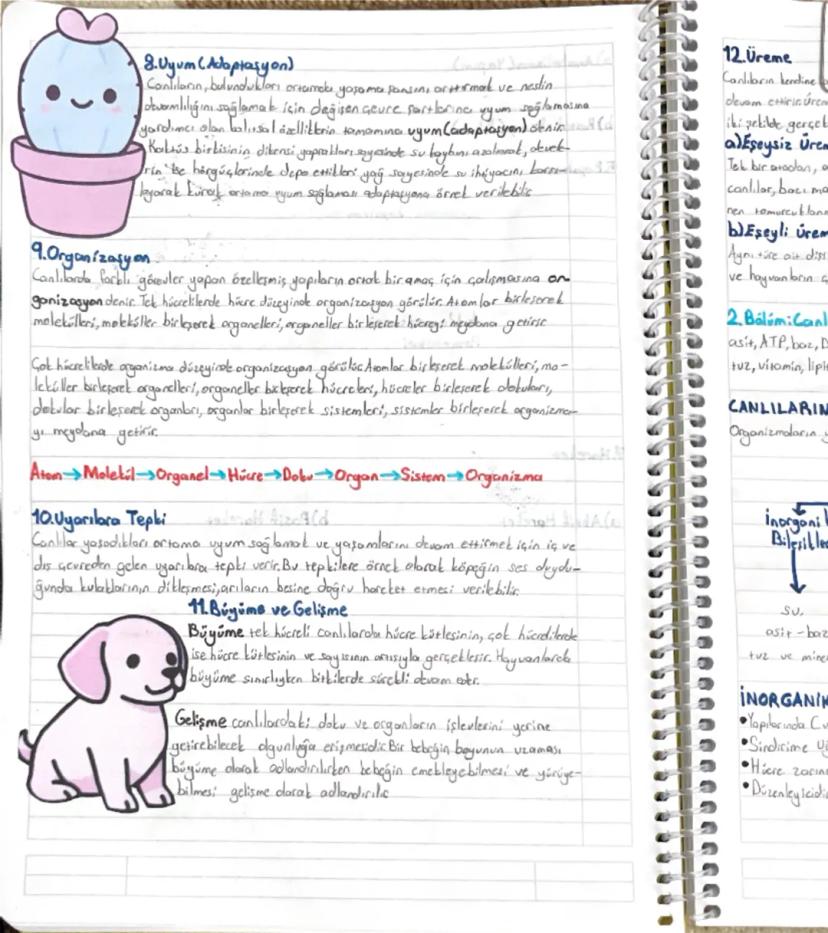 8.Uyum(Adaptasyon)
Canlıların, bulundukları ortamda yaşama şansını arttırmak ve neslin
devamlılığını sağlamak için değişen çevre şartlarına uyum sağlamasına
yardımcı olan kalıtsal özelliklerin tamamına uyum(adaptasyon) denir.
Kaktüs bitkisinin dikensi yaprakları sayesinde su kaybını azalmak, devele-
rin ise hörgüçlerinde depo ettikleri yağ sayesinde su ihtiyacını karşı-
layarak kurak ortama uyum sağlaması adaptasyona örnek verilebilir.
9.Organizasyon
Canlılarda farklı görevler yapan özelleşmiş yapıların ortak bir amaç için çalışmasına or-
ganizasyon denir. Tek hücrelilerde hücre düzeyinde organizasyon görülür. Atomlar birleşerek
molekülleri, moleküller birleşerek organelleri, organeller birleşerek hücreyi meydana getirir.
Çok hücrelilerde organizma düzeyinde organizasyon görülür. Atomlar birleşerek molekülleri, mo-
leküller birleşerek organelleri, organeller birleşerek hücreleri, hücreler birleşerek dokuları,
dokular birleşerek organları, organlar birleşerek sistemleri, sistemler birleşerek organizma-
yı meydana getirir.
Atom→Molekül→Organel→Hücre→Doku→Organ→Sistem→Organizma
10.Uyarılara Tepki
Canlılar yaşadıkları ortama uyum sağlamak ve yaşamlarını devam ettirmek için iç ve
dış çevreden gelen uyarılara tepki verir. Bu tepkilere örnek olarak köpeğin ses duydu-
ğunda kulaklarının dikleşmesi, arıların besine doğru hareket etmesi verilebilir.
11.Büyüme ve Gelişme
Büyüme tek hücreli canlılarda hücre kütlesinin, çok hücrelilerde
ise hücre kütlesinin ve sayısının artışıyla gerçekleşir. Hayvanlarda
büyüme sınırlıyken bitkilerde sürekli devam eder.
Gelişme canlılardaki doku ve organların işlevlerini yerine
getirebilecek olgunluğa erişmesidir. Bir bebeğin boyunun uzaması
büyüme olarak adlandırılırken bebeğin emekleyebilmesi ve yürüye-
bilmesi gelişme olarak adlandırılır.
12.Üreme
Canlıların kendine
devam ettirir. Üreme
iki şekilde gerçek
a)Eşeysiz Ürem
Tek bir atadan,
canlılar, bazı
nen tomurcuklan
b)Eşeyli Ürem
Aynı türe ait diş
ve hayvanların
2.Bölüm:Canl
asit, ATP, baz, D
tuz, vitamin, lipi
CANLILARIN
Organizmaların
İnorgani
Bileşikle
su,
asit-baz
tuz ve mine
İNORGANİK
•Yapılarında C
•Sindirime
•Hücre zarın
•Düzenleyicidi